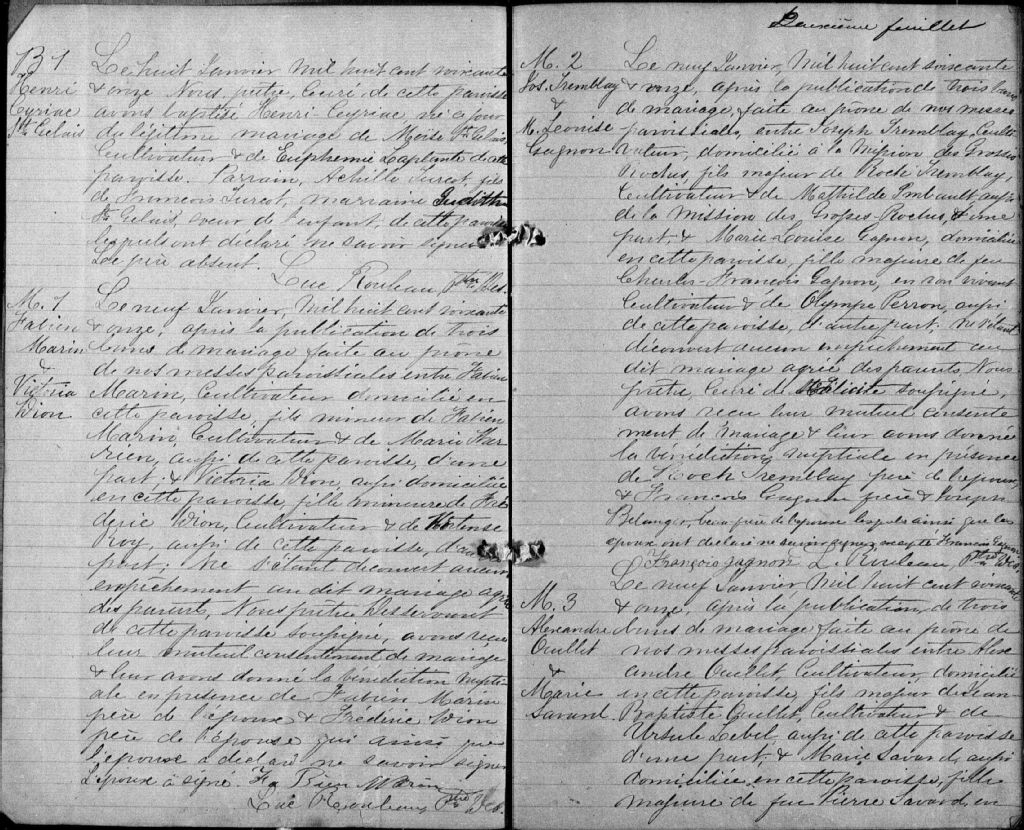 B 1
Henri
Cyriac
St. Gelais
Le huit Janvier Mil huit cent soixante
& onze Nous, prêtre, Curé de cette paroisse
avons baptisé Henri-Cyriac, né ce jour
du légitime mariage de Moïse St. Gelais,
Cultivateur & de Euphemie Laplante de cette
paroisse. Parrain, Achille Turcot, fils
de François Turcot, marraine Judith
St. Gelais, soeur de l'enfant, de cette paroisse
lesquels ont déclaré ne savoir signer
Le père absent.
Luc Rouleau, Ptre Des.
M. 1
Fabien
Marin
&
Victoria
Dion
Le neuf Janvier, Mil huit cent soixante
& onze, après la publication de trois
bans de mariage faite au prône
de nos messes paroissiales entre Fabien
Marin, Cultivateur domicilié en
cette paroisse, fils mineur de Fabien
Marin, Cultivateur & de Marie Ther
rien, aussi de cette paroisse, d'une
part; & Victoria Dion, aussi domiciliée
en cette paroisse, fille mineure de Fré
deric Dion, Cultivateur & de Hortense
Roy, aussi de cette paroisse, d'autre
part; Ne s'étant découvert aucun
empêchement au dit mariage agréé
des parents, Nous prêtre Desservant
de cette paroisse soussigné, avons reçu
leur mutuel consentement de mariage
& leur avons donné la bénédiction nupti
ale en présence de Fabien Marin
père de l'époux & Fréderic Dion
père de l'épouse qui ainsi que
l'épouse a déclaré ne savoir signer
L'époux a signé. Fa Bien Marin
Luc Rouleau Ptre Des.
Deuxième feuillet
M. 2
Jos. Tremblay
&
M. Leonise
Gagnon
Le neuf Janvier, Mil huit cent soixante
& onze, après la publication de trois bans
de mariage, faite au prône de nos messes
paroissiales, entre Joseph Tremblay, Culti
vateur, domicilié à la Mission des Grosses
Roches, fils majeur de Roch Tremblay,
Cultivateur & de Mathilde Imbault, aussi
de la Mission des Grosses-Roches, d'une
part, & Marie Louise Gagnon, domiciliée
en cette paroisse, fille majeure de feu
Charles-François Gagnon, en son vivant
Cultivateur & de Olympe Perron, aussi
de cette paroisse, d'autre part, Ne s'étant
découvert aucun empêchement au
dit mariage agréé des parents, Nous
prêtre, Curé de Ste Félicité soussigné,
avons reçu leur mutuel consente
ment de mariage & leur avons donné
la bénédiction nuptiale en présence
de Roch Tremblay père de l'époux,
& François Gagnon frère & Joseph
Belanger, beau père de l'épouse lesquels ainsi que les
époux ont déclaré ne savoir signer excepté François Gagnon
François Gagnon L. Rouleau, Ptre Des
M. 3
Alexandre
Ouellet
&
Marie
Savard
Le neuf Janvier Mil huit cent soixante
& onze, après la publication, de trois
bans de mariage faite au prône de
nos messes paroissiales entre Alex
andre Ouellet, Cultivateur, domicilié
en cette paroisse, fils majeur de Jean
Baptiste Ouellet, Cultivateur & de
Ursule Lebel aussi de cette paroisse
d'une part, & Marie Savard, aussi
domiciliée en cette paroisse, fille
majeure de feu Pierre Savard, en